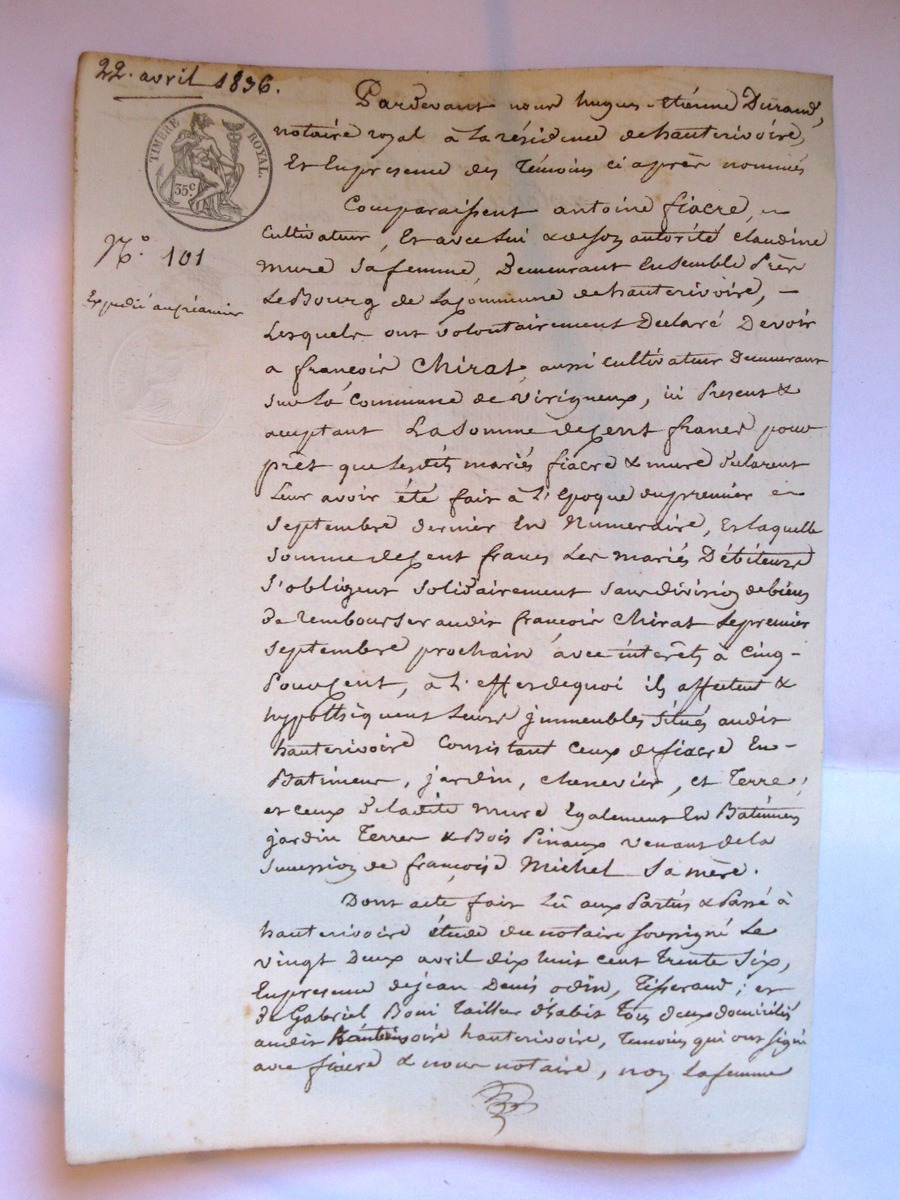 22. avril 1836.
TIMBRE ROYAL.
35c
N.° 101
Expédié au créancier
Pardevant nous hugues-étienne Durand,
notaire royal à la résidence de hauterivoire,
Et En presence des Témoins ci après nommés
Comparaissent antoine fiacre,
Cultivateur, Et avec lui & de son autorité claudine
mure sa femme, Demeurant Ensemble Près
Le Bourg de La Commune de hauterivoire, -
Lesquels ont volontairement Déclaré Devoir
a françois Chirat, aussi Cultivateur Demeurant
sur la Commune de Virigneux, ici Present &
acceptant La Somme de Cent francs pour
prêt que Lesdits mariés fiacre & mure Declarent
Leur avoir été fait à l'Epoque du premier
Septembre dernier En Numeraire, Et laquelle
Somme de Cent francs Les mariés Débiteurs
S'obligent Solidairement Sans division de biens
De rembourser audit françois Chirat Le premier
Septembre prochain avec intérêts à Cinq-
Pour Cent, à L'effet de quoi ils affectent &
hypothèquent Leurs jmmeubles Situés audit
hauterivoire Consistant Ceux de fiacre En-
Batimens, jardin, chenevier, et Terre,
et ceux de ladite mure Egalement En Batimens
jardin Terres & Bois Pinaux venant de la
Succession de françoise Michel Sa mère.
Dont acte fait Lu aux Parties & Passé à
hauterivoire étude du notaire soussigné Le
vingt Deux avril dix huit cent trente Six,
En presence de jean Denis odin, Tisserand; et
De Gabriel Boni Tailleur d'habit Tous deux domiciliés
audit hauterivoire, Temoins qui ont signé
avec fiacre & nous notaire, non La femme